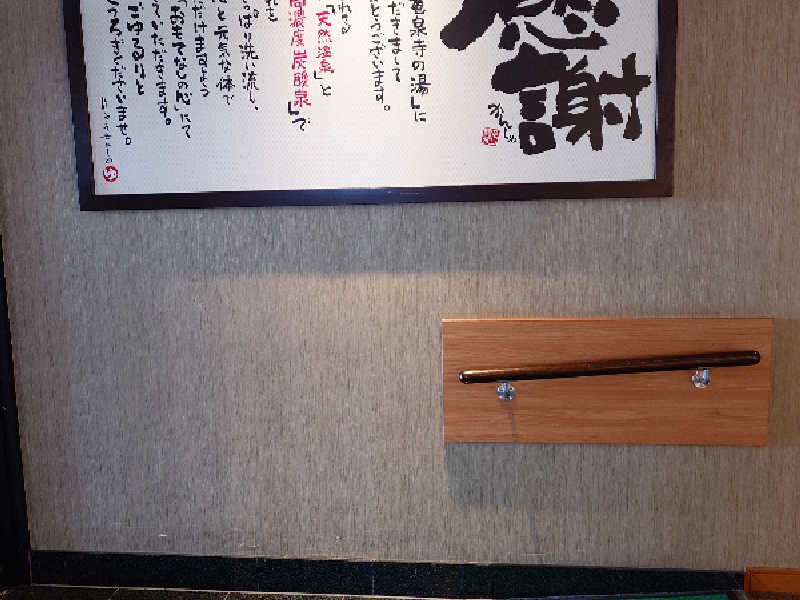 感謝
かんしゃ
竜泉寺の湯」に
だきまして
とうございます。
れる
天然温泉」と
高濃度炭酸泉」で
れを
っぱり洗い流し、
と元気な体で
だけますよう
おもてなしの心」にて
えいただきます。
ごゆるりと
くつろぎくださいませ。
ゆ